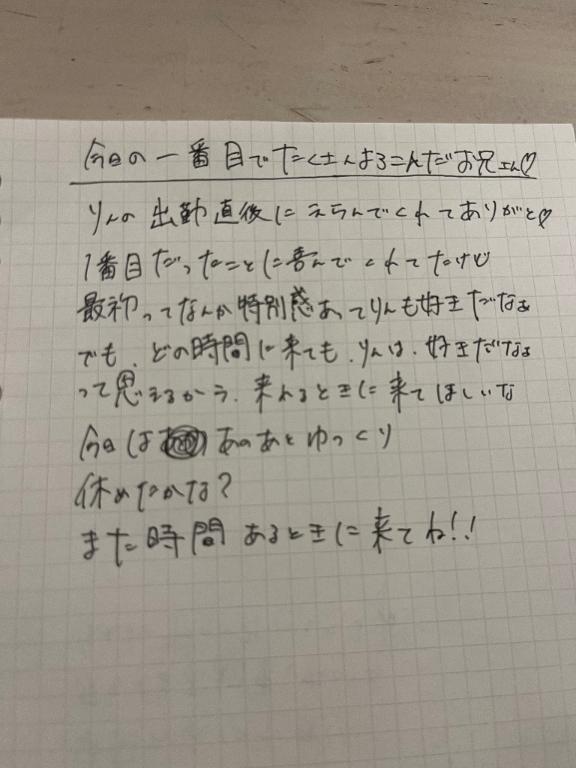 今日の一番目でたくさんよろこんだお兄さん♡
りんの出勤直後にえらんでくれてありがと♡
1番目だったことに喜んでくれてたけど
最初ってなんか特別感あってりんも好きだなぁ
でも、どの時間に来ても、りんは、好きだなぁ
って思えるから、来れるときに来てほしいな
今日はあのあとゆっくり
休めたかな?
また時間あるときに来てね!!